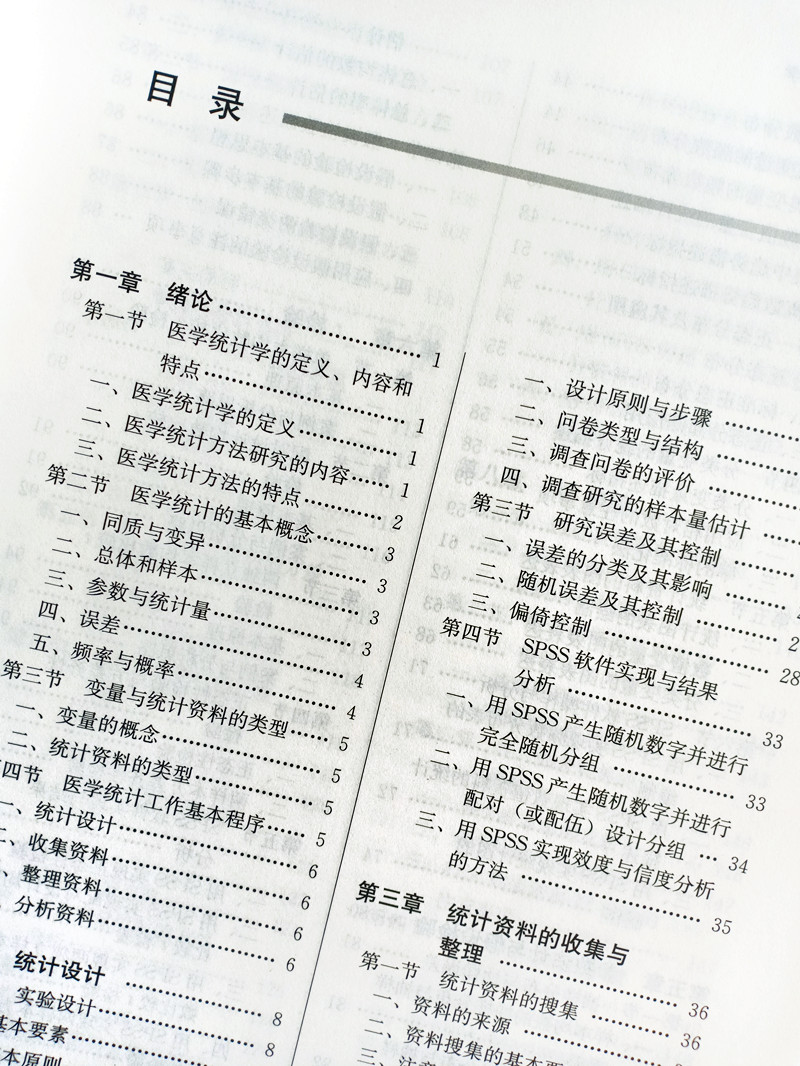 目 录
第一章 绪论……1
第一节 医学统计学的定义、内容和
特点……1
一、医学统计学的定义……1
二、医学统计方法研究的内容……1
三、医学统计方法的特点……2
第二节 医学统计的基本概念……3
一、同质与变异……3
二、总体和样本……3
三、参数与统计量……3
四、误差……4
五、频率与概率……4
第三节 变量与统计资料的类型……5
一、变量的概念……5
二、统计资料的类型……5
四节 医学统计工作基本程序……5
一、统计设计……6
二、收集资料……6
、整理资料……6
、分析资料……6
统计设计
实验设计……8
基本要素……8
本原则
一、设计原则与步骤……
二、问卷类型与结构……
三、调查问卷的评价……
四、调查研究的样本量估计……
第三节 研究误差及其控制……
一、误差的分类及其影响……
二、随机误差及其控制……2
三、偏倚控制……28
第四节 SPSS 软件实现与结果
分析……33
一、用 SPSS 产生随机数字并进行
完全随机分组……33
二、用 SPSS 产生随机数字并进行
配对（或配伍）设计分组……34
三、用 SPSS 实现效度与信度分析
的方法……35
第三章 统计资料的收集与
整理……36
第一节 统计资料的搜集……36
一、资料的来源
二、资料搜集的基本要
三、注意